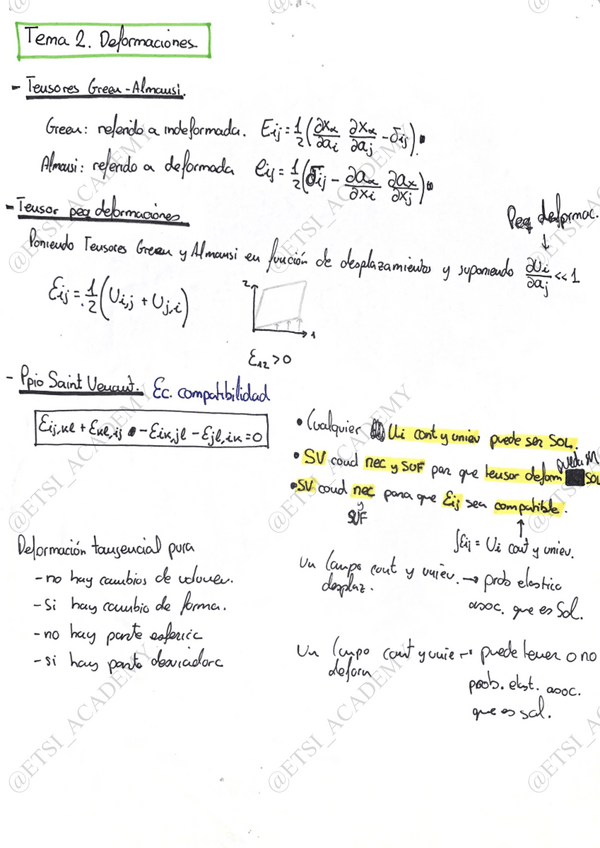 Tema 2. Deformaciones
- Tensores Green-Almansi.
Green: referido a indeformada. Eij = 1/2 (∂xα/∂ai ∂xα/∂aj - δij).
Almansi: referido a deformada eij = 1/2 (δij - ∂aα/∂xi ∂aα/∂xj)
- Tensor peq deformaciones
Peq deformac.
↓
Poniendo Tensores Green y Almansi en función de desplazamientos y suponiendo ∂Ui/∂aj << 1
Eij = 1/2 (Ui,j + Uj,i)
2
1
E12 > 0
- Ppio Saint Venant. Ec. compatibilidad
Eij,kl + Ekl,ij - Eik,jl - Ejl,ik = 0
• Cualquier Ui cont y univ puede ser SOL.
• SV cond nec y SUF para que tensor deform SOL
• SV cond nec para que Eij sea compatible.
y
SUF
↑
∫Eij = Ui cont y univ.
Deformación tangencial pura
- no hay cambios de volumen.
- si hay cambio de forma.
- no hay parte esférica
- si hay parte desviadora
Un Campo cont y univ. → prob elastico
desplaz.
asoc. que es Sol.
Un Campo cont y univ → puede tener o no
deform
prob. elast. asoc.
que es sol.
@ETSI_ACADEMY
@ETSI_ACADEMY
@ETSI_ACADEMY
@ETSI_ACADEMY
@ETSI_ACADEMY
@ETSI_ACADEMY